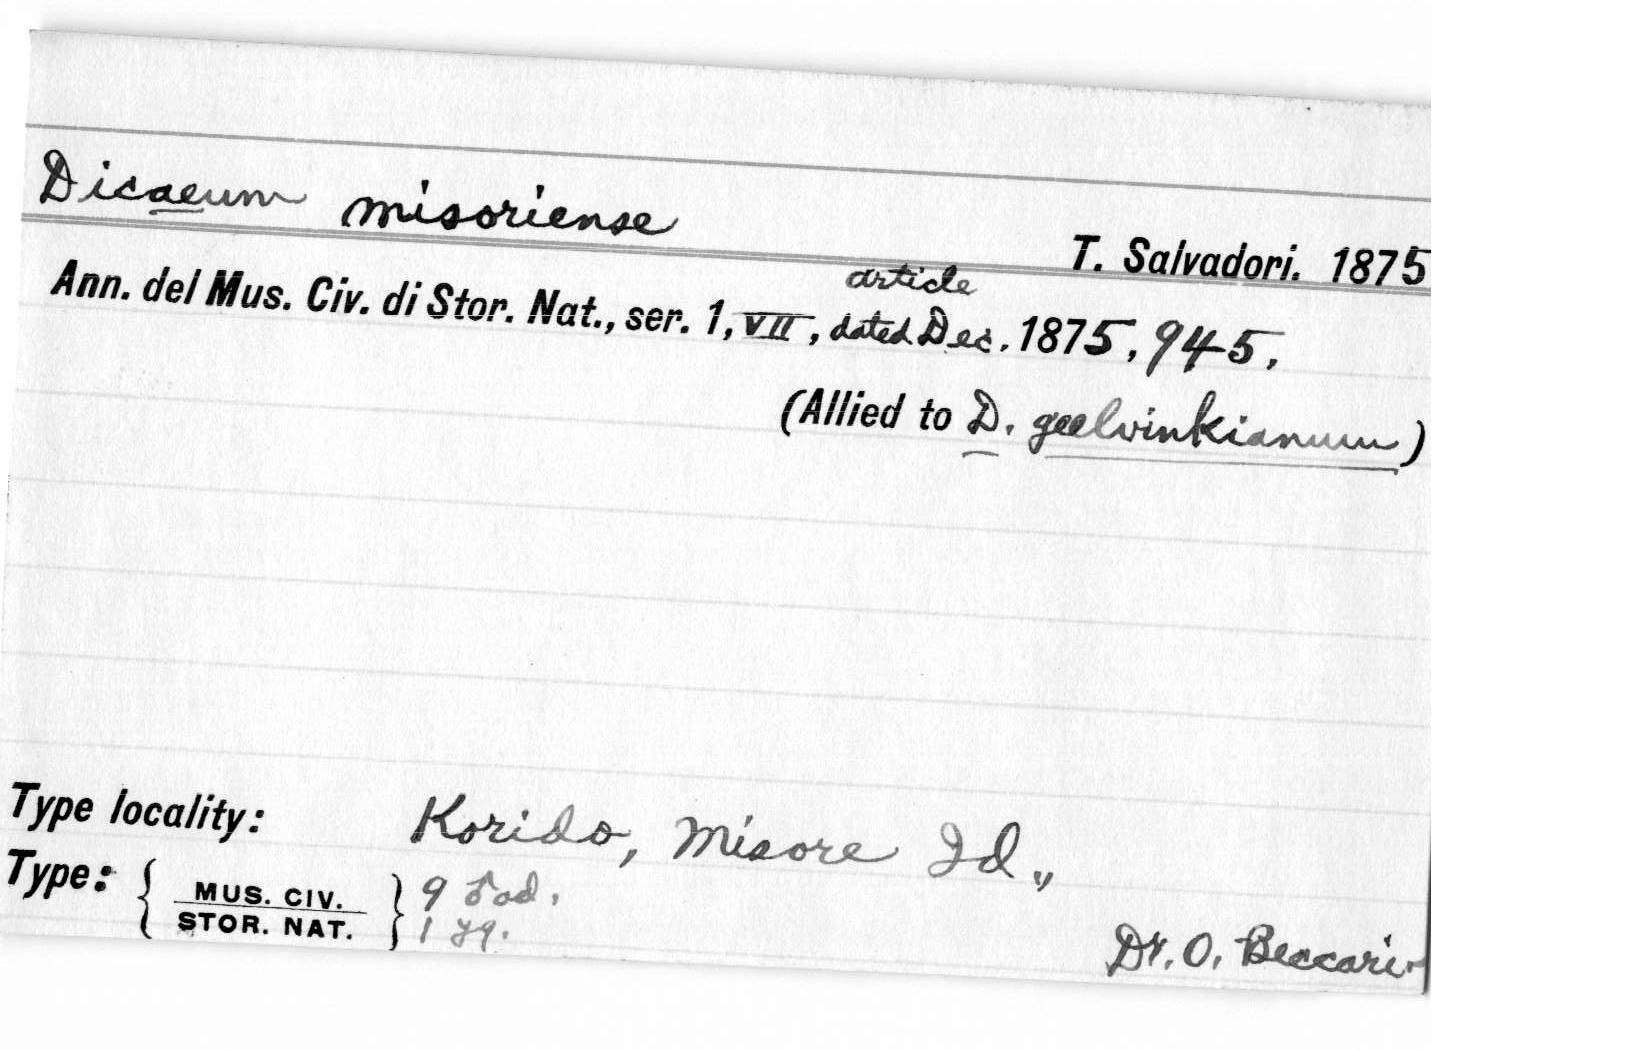 Dicaeum misoriense
T. Salvadori. 1875
article
Ann. del Mus. Civ. di Stor. Nat., ser. 1, VII, dated Dec. 1875, 945.
(Allied to D. geelvinkianum)
Type locality: Korido, Misore Id.,
Type: { MUS. CIV. } 9 ♂ ad.
STOR. NAT. 1 yg.
Dr. O. Beccari.